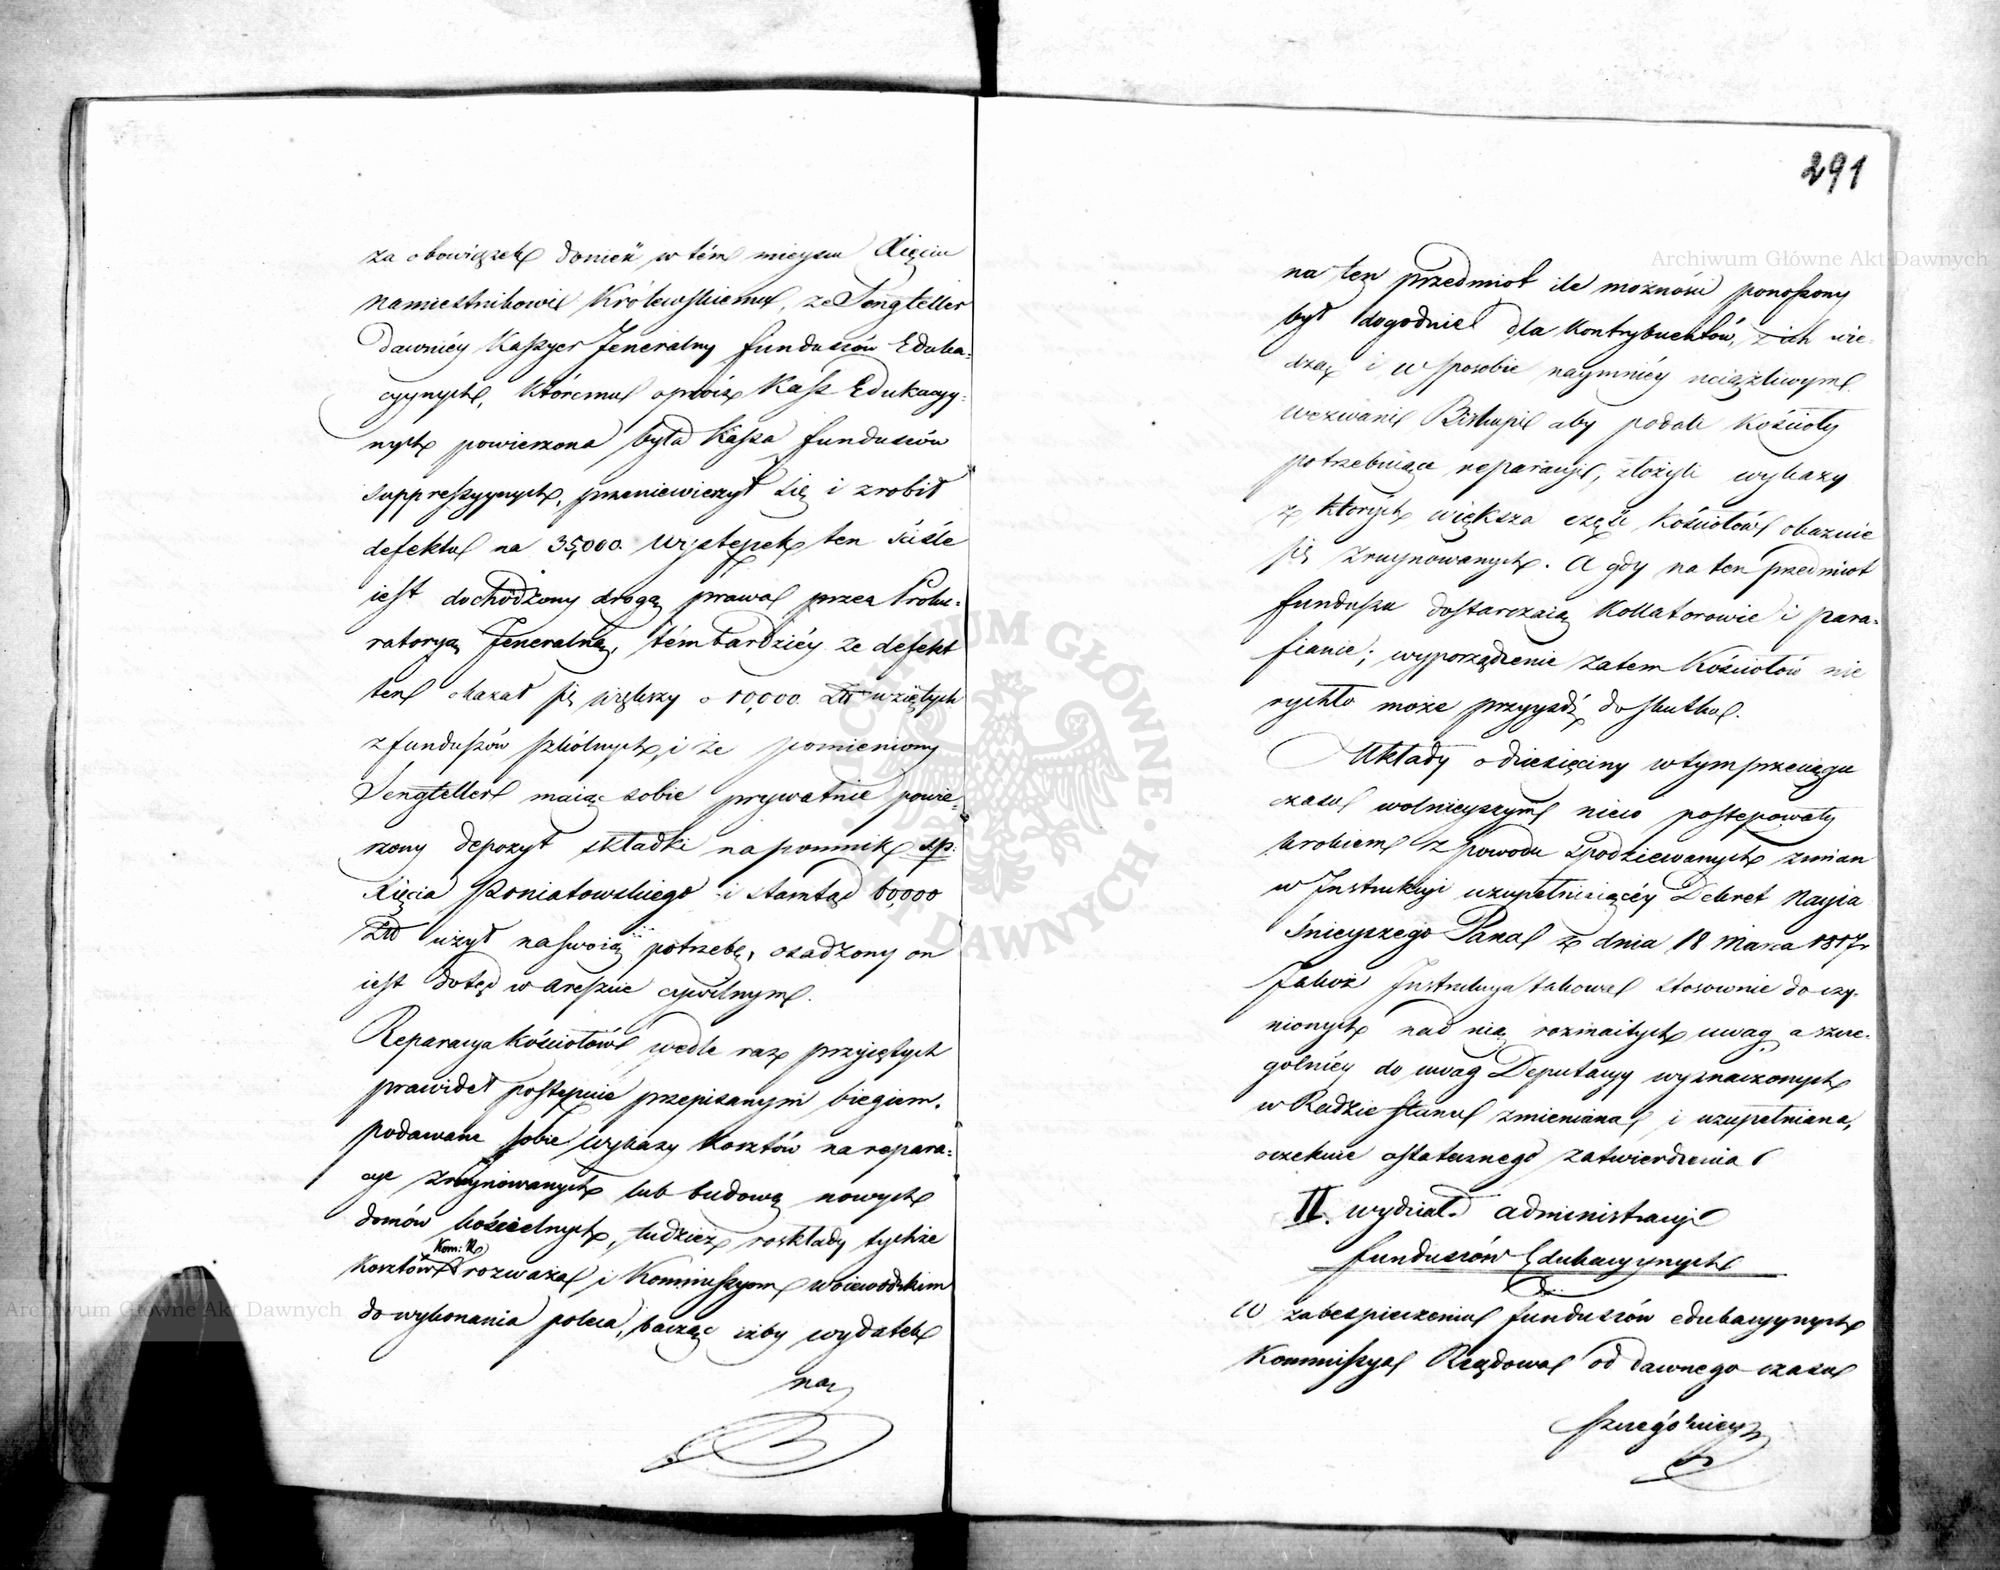 za obowiązek donieść w tém mieyscu Xięciu
Namiestnikowi Królewskiemu, że Sengteller
dawnièy Kassyer Jeneralny funduszów Eduka-
cyynych, któremu oprócz Kass Edukacyy-
nych powierzona była Kassa funduszów
suppressyynych, przeniewierzył się i zrobił
defektu na 35,000. Występek ten ściśle
iest dochodzony drogą prawa przez Proku-
ratoryą Jeneralną, tém bardzièy że defekt
ten okazał się większy o 10,000. Zł wziętych
z funduszów szkólnych, i że pomieniony
Sengteller maiąc sobie prywatnie powie-
rzony depozyt składki na pomnik śp:
Xięcia Poniatowskiego i stamtąd 60,000
Zł użył na swoią potrzebę, osadzony on
iest dotąd w areszcie cywilnym.
Reparacya Kościołów wedle raz przyiętych
prawideł postępuie przepisanym biegiem.
podawane sobie wykazy kosztów na repara-
cye zruynowanych lub budowę nowych
domów kościelnych, tudzież rozkłady tychże
Kom: R
kosztów rozważa i Kommissyom woiewódzkim
do wykonania poleca, bacząc iżby wydatek
na
291
na ten przedmiot ile możności ponoszony
był dogodnie dla kontrybuentów, z ich wie-
dzą i w sposobie naymnièy uciążliwym
wezwani Biskupi aby podali Kościoły
potrzebuiące reparacyi, złożyli wykazy
z których większa część kościołów okazuie
się zruynowanych. A gdy na ten przedmiot
funduszu dostarczaią Kollatorowie i para-
fianie; wyporządzenie zatem Kościołów nie
rychło może przyyść do skutku.
Układy o dziesięciny w tym przeciągu
czasu wolnieyszym nieco postępowały
krokiem z powodu spodziewanych zmian
w Instrukcyi uzupełniaiącéy Dekret Nayia
śnieyszego Pana z dnia 18 Marca 1817r
Jakoż Instrukcya takowa stosownie do czy-
nionych nad nią rozmaitych uwag, a szcze-
gólnièy do uwag Deputacyy wyznaczonych
w Radzie Stanu zmieniana i uzupełniana,
oczekuie ostatecznego zatwierdzenia
II. wydział administracyi
funduszów Edukacyynych
O zabespieczeniu funduszów edukacyynych
Kommissya Rządowa od dawnego czasu
szczególnièy
Archiwum Główne Akt Dawnych
Archiwum Główne Akt Dawnych
ARCHIWUM GŁÓWNE AKT DAWNYCH